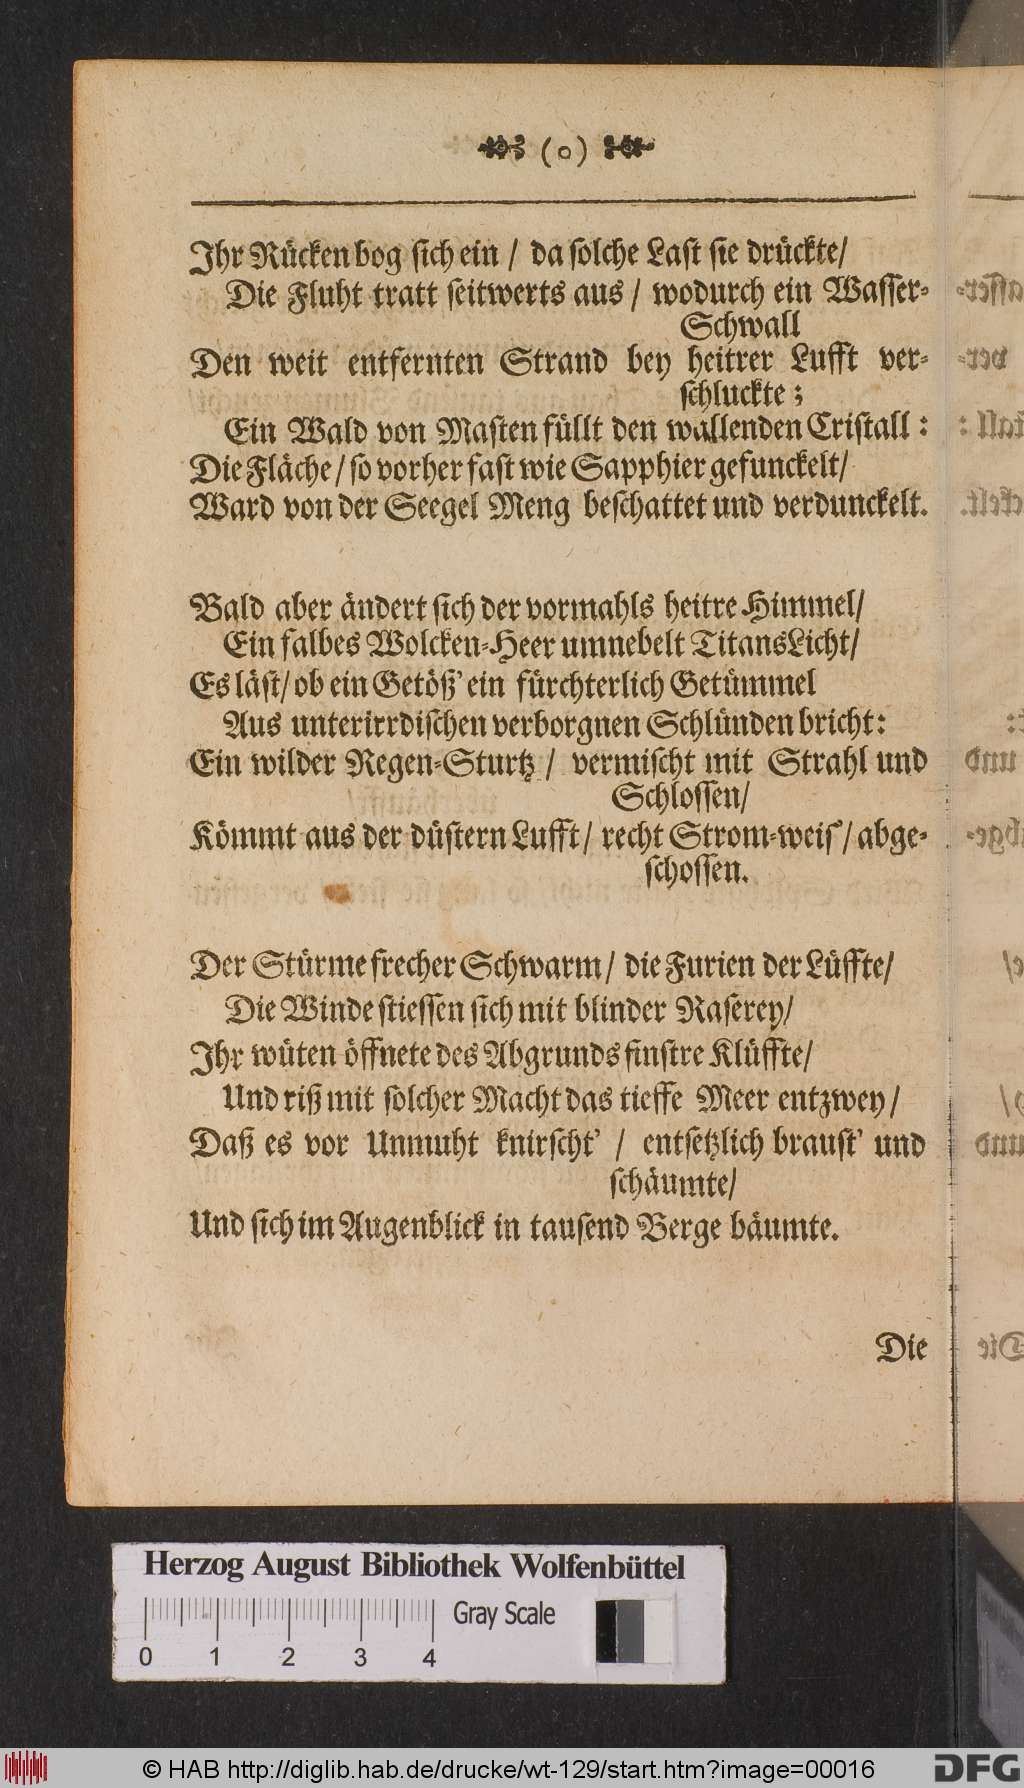 (o)
Ihr Rücken bog sich ein / da solche Last sie drückte/
Die Fluht tratt seitwerts aus / wodurch ein Wasser-
Schwall
Den weit entfernten Strand bey heitrer Lufft ver-
schluckte;
Ein Wald von Masten füllt den wallenden Cristall:
Die Fläche/ so vorher fast wie Sapphier gefunckelt/
Ward von der Seegel Meng beschattet und verdunckelt.
Bald aber ändert sich der vormahls heitre Himmel/
Ein falbes Wolcken-Heer umnebelt Titans Licht/
Es läst/ ob ein Getöß' ein fürchterlich Getümmel
Aus unterirrdischen verborgnen Schlünden bricht:
Ein wilder Regen-Sturtz / vermischt mit Strahl und
Schlossen/
Kömmt aus der düstern Lufft/ recht Strom-weis'/ abge-
schossen.
Der Stürme frecher Schwarm/ die Furien der Lüffte/
Die Winde stiessen sich mit blinder Raserey/
Ihr wüten öffnete des Abgrunds finstre Klüffte/
Und riß mit solcher Macht das tieffe Meer entzwey/
Daß es vor Unmuht knirscht' / entsetzlich braust' und
schäumte/
Und sich im Augenblick in tausend Berge bäumte.
Die
Herzog August Bibliothek Wolfenbüttel
Gray Scale
0 1 2 3 4
© HAB http://diglib.hab.de/drucke/wt-129/start.htm?image=00016
DFG